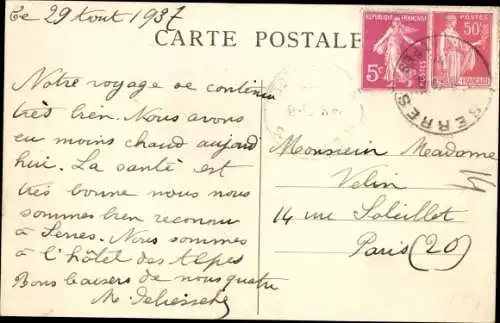 Le 29 Aout 1937
CARTE POSTALE
REPUBLIQUE FRANÇAISE
5c
POSTES
50c
SERRES
Notre voyage se continue
très bien. Nous avons
eu moins chaud aujourd
hui. La santé est
très bonne nous nous
sommes bien reconnu
à Serres. Nous sommes
à l'hôtel des Alpes
Bons baisers de nous quatre
M.
Monsieur Madame
Velin
14 rue Soleillet
Paris (20)